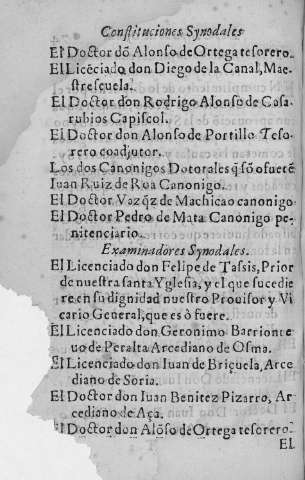 Constituciones Synodales
El Doctor dõ Alonso de Ortega tesorero.
El Licẽciado don Diego de la Canal, Mae-
strescuela.
El Doctor don Rodrigo Alonso de Casa
rubios Capiscol.
El Doctor don Alonso de Portillo Teso-
rero coadjutor.
Los dos Canonigos Dotorales q̃ sõ o fuerẽ
Iuan Ruiz de Roa Canonigo.
El Doctor Vazq̃z de Machicao canonigo
El Doctor Pedro de Mata Canonigo pe-
nitenciario.
Examinadores Synodales.
El Licenciado don Felipe de Tassis, Prior
de nuestra santa Yglesia, y el que sucedie
re en su dignidad nuestro Prouisor y Vi
cario General, que es ò fuere.
El Licenciado don Geronimo Barrionue
uo de Peralta Arcediano de Osma.
El Licenciado don Iuan de Briçuela, Arce
diano de Soria.
El Doctor don Iuan Benitez Pizarro, Ar
cediano de Aça.
El Doctor don Alõso de Ortega tesorero
El